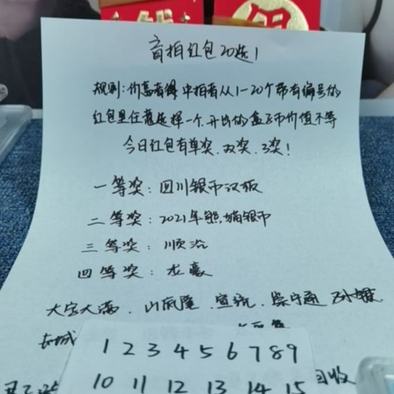 盲拍红包20选1
规则:价高者得 中拍者从1-20个带有编号的
红包里任意选择一个,开出的盒子币价值不等
今日红包有单奖,双奖,3奖!
一等奖:四川银币汉版
二等奖:2021年熊猫银币
三等奖:顺治
四等奖:龙毫
大宝大满,山,宣统,
赤城
1 2 3 4 5 6 7 8 9
10 11 12 13 14 15
回收